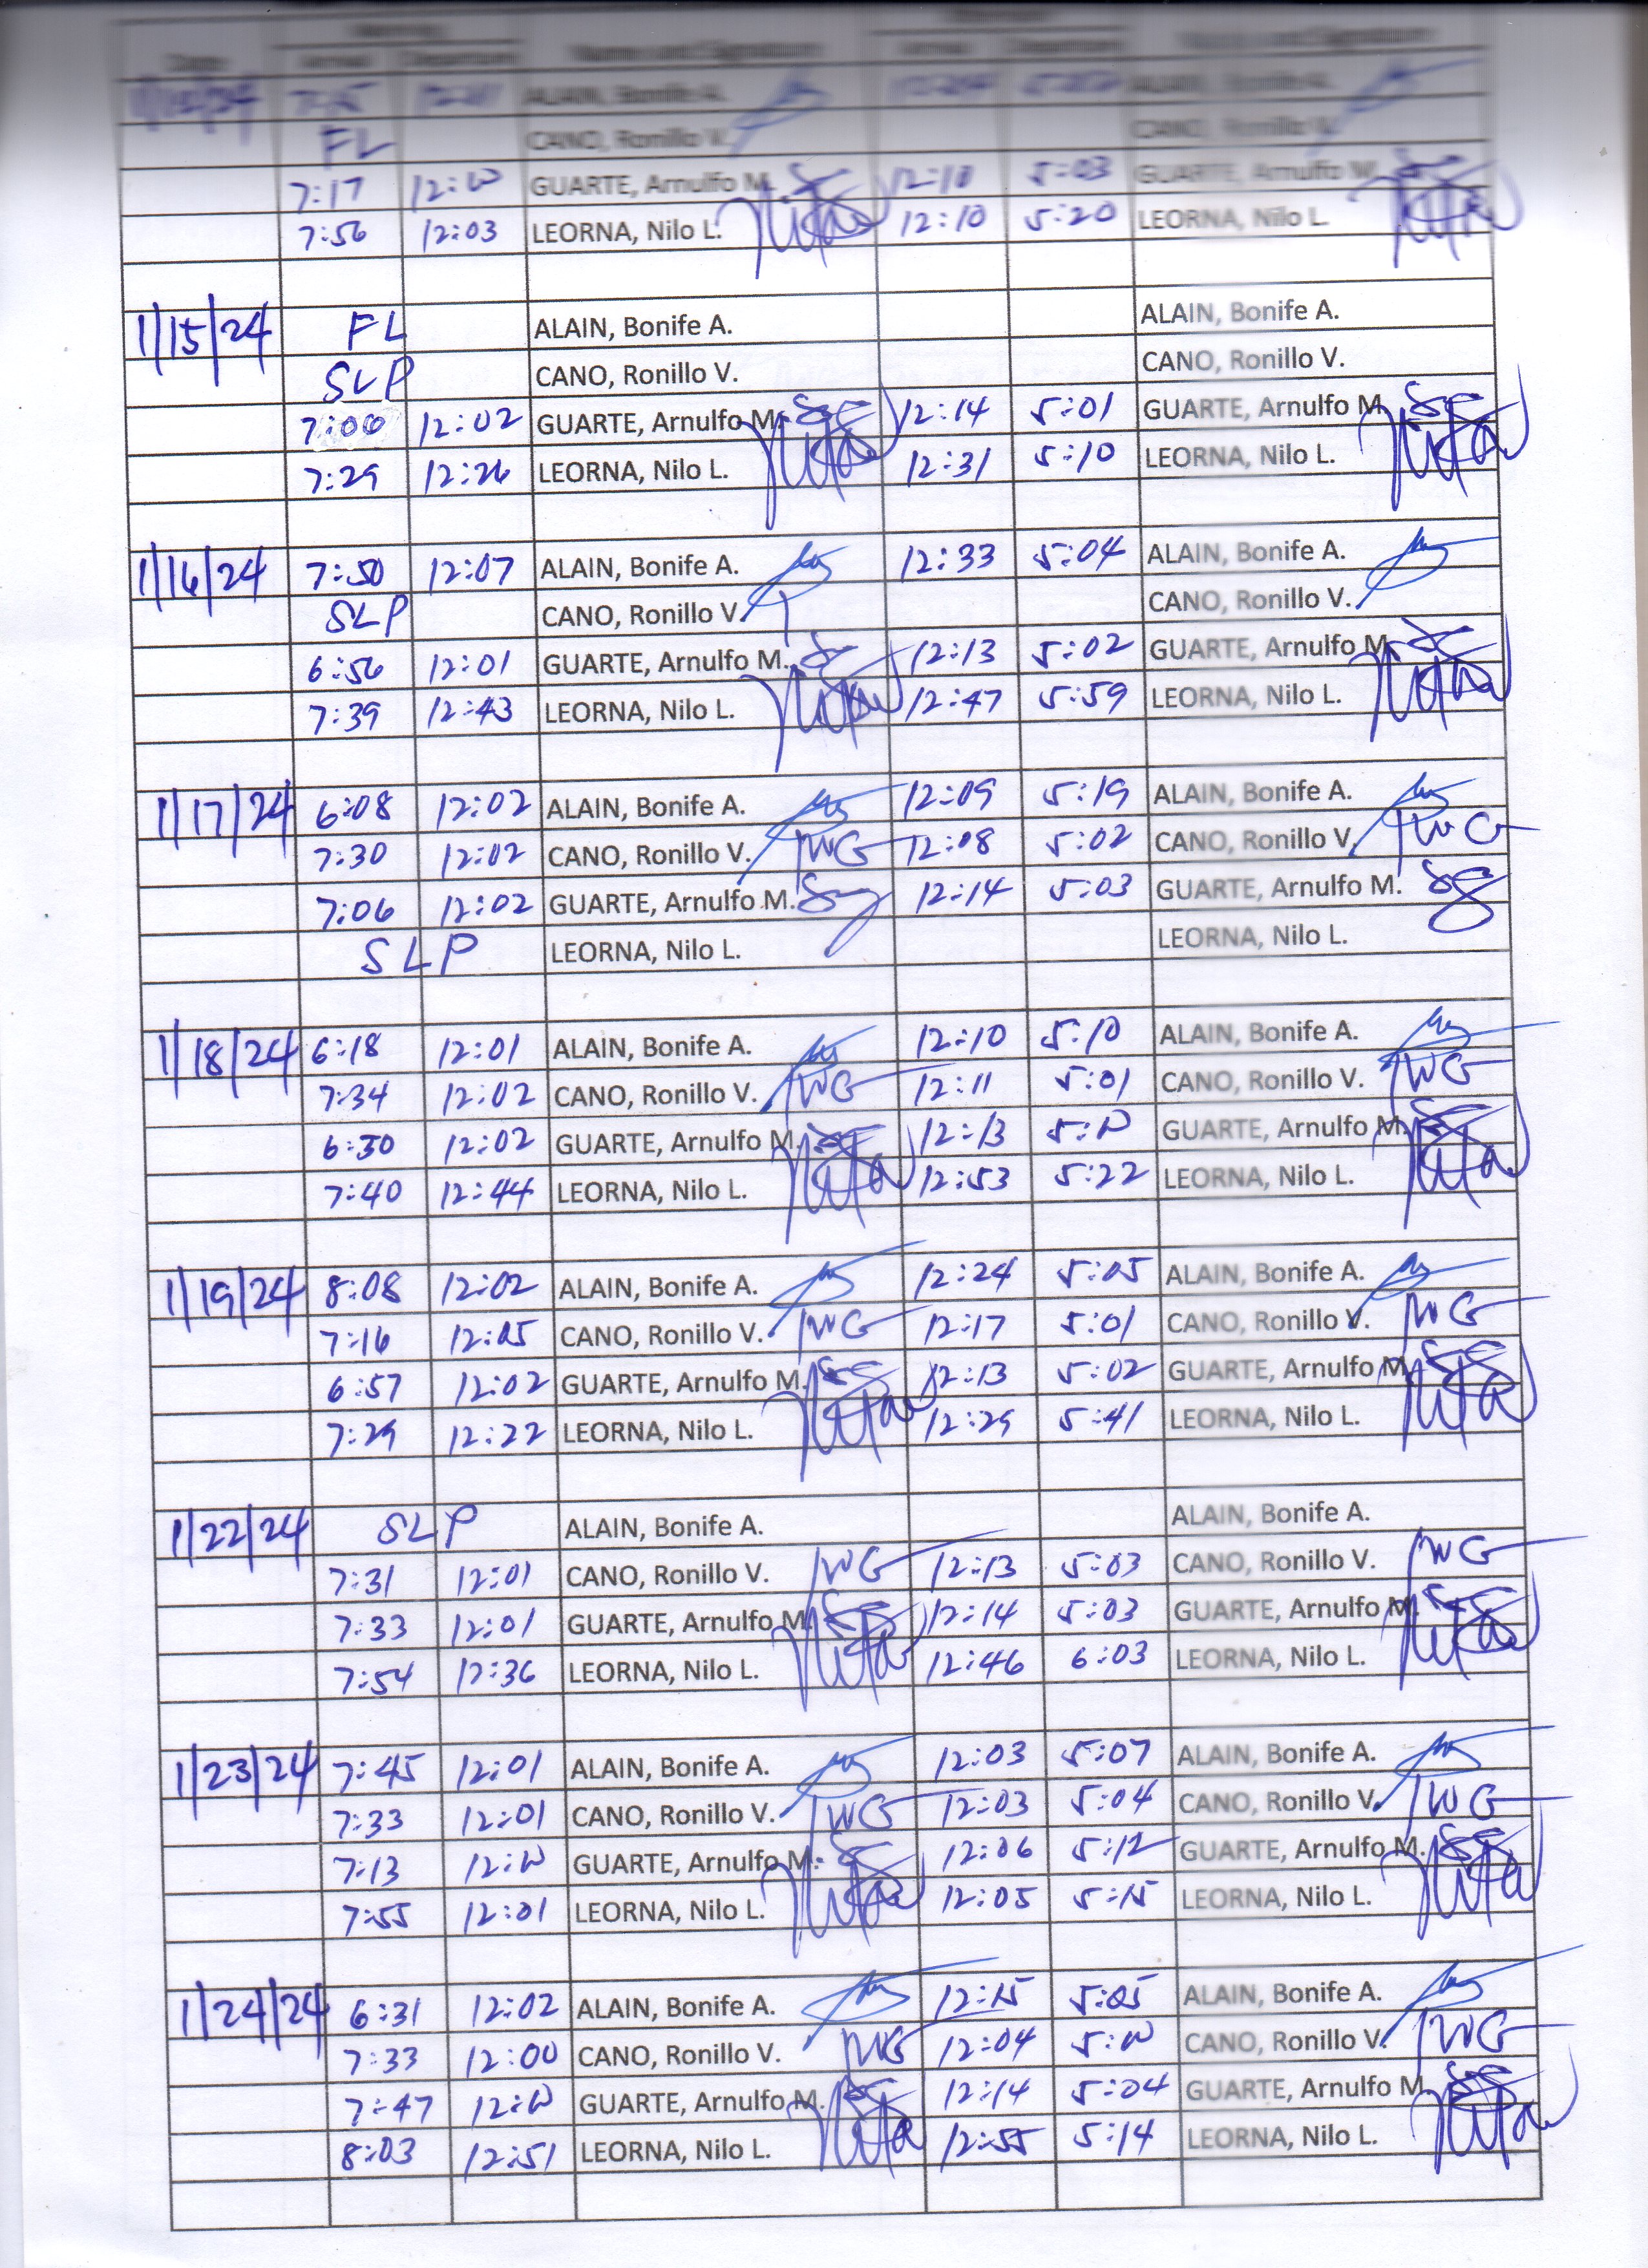 Date Arrival Departure Name and Signature Arrival Departure Name and Signature
7:15 ALAIN, Bonife A. ALAIN, Bonife A.
FL CANO, Ronillo V. CANO, Ronillo V.
7:17 12:00 GUARTE, Arnulfo M. 12:10 5:03 GUARTE, Arnulfo M.
7:56 12:03 LEORNA, Nilo L. 12:10 5:20 LEORNA, Nilo L.
1/15/24 FL ALAIN, Bonife A. ALAIN, Bonife A.
SLP CANO, Ronillo V. CANO, Ronillo V.
7:00 12:02 GUARTE, Arnulfo M. 12:14 5:01 GUARTE, Arnulfo M.
7:29 12:26 LEORNA, Nilo L. 12:31 5:10 LEORNA, Nilo L.
1/16/24 7:50 12:07 ALAIN, Bonife A. 12:33 5:04 ALAIN, Bonife A.
SLP CANO, Ronillo V. CANO, Ronillo V.
6:56 12:01 GUARTE, Arnulfo M. 12:13 5:02 GUARTE, Arnulfo M.
7:39 12:43 LEORNA, Nilo L. 12:47 5:59 LEORNA, Nilo L.
1/17/24 6:08 12:02 ALAIN, Bonife A. 12:09 5:19 ALAIN, Bonife A.
7:30 12:02 CANO, Ronillo V. 12:08 5:02 CANO, Ronillo V.
7:06 12:02 GUARTE, Arnulfo M. 12:14 5:03 GUARTE, Arnulfo M.
SLP LEORNA, Nilo L. LEORNA, Nilo L.
1/18/24 6:18 12:01 ALAIN, Bonife A. 12:10 5:10 ALAIN, Bonife A.
7:34 12:02 CANO, Ronillo V. 12:11 5:01 CANO, Ronillo V.
6:30 12:02 GUARTE, Arnulfo M. 12:13 5:00 GUARTE, Arnulfo M.
7:40 12:44 LEORNA, Nilo L. 12:53 5:22 LEORNA, Nilo L.
1/19/24 8:08 12:02 ALAIN, Bonife A. 12:24 5:05 ALAIN, Bonife A.
7:16 12:05 CANO, Ronillo V. 12:17 5:01 CANO, Ronillo V.
6:57 12:02 GUARTE, Arnulfo M. 12:13 5:02 GUARTE, Arnulfo M.
7:29 12:22 LEORNA, Nilo L. 12:29 5:41 LEORNA, Nilo L.
1/22/24 SLP ALAIN, Bonife A. ALAIN, Bonife A.
7:31 12:01 CANO, Ronillo V. 12:13 5:03 CANO, Ronillo V.
7:33 12:01 GUARTE, Arnulfo M. 12:14 5:03 GUARTE, Arnulfo M.
7:54 12:36 LEORNA, Nilo L. 12:46 6:03 LEORNA, Nilo L.
1/23/24 7:45 12:01 ALAIN, Bonife A. 12:03 5:07 ALAIN, Bonife A.
7:33 12:01 CANO, Ronillo V. 12:03 5:04 CANO, Ronillo V.
7:13 12:00 GUARTE, Arnulfo M. 12:06 5:12 GUARTE, Arnulfo M.
7:55 12:01 LEORNA, Nilo L. 12:05 5:15 LEORNA, Nilo L.
1/24/24 6:31 12:02 ALAIN, Bonife A. 12:15 5:05 ALAIN, Bonife A.
7:33 12:00 CANO, Ronillo V. 12:04 5:00 CANO, Ronillo V.
7:47 12:00 GUARTE, Arnulfo M. 12:14 5:04 GUARTE, Arnulfo M.
8:03 12:51 LEORNA, Nilo L. 12:55 5:14 LEORNA, Nilo L.